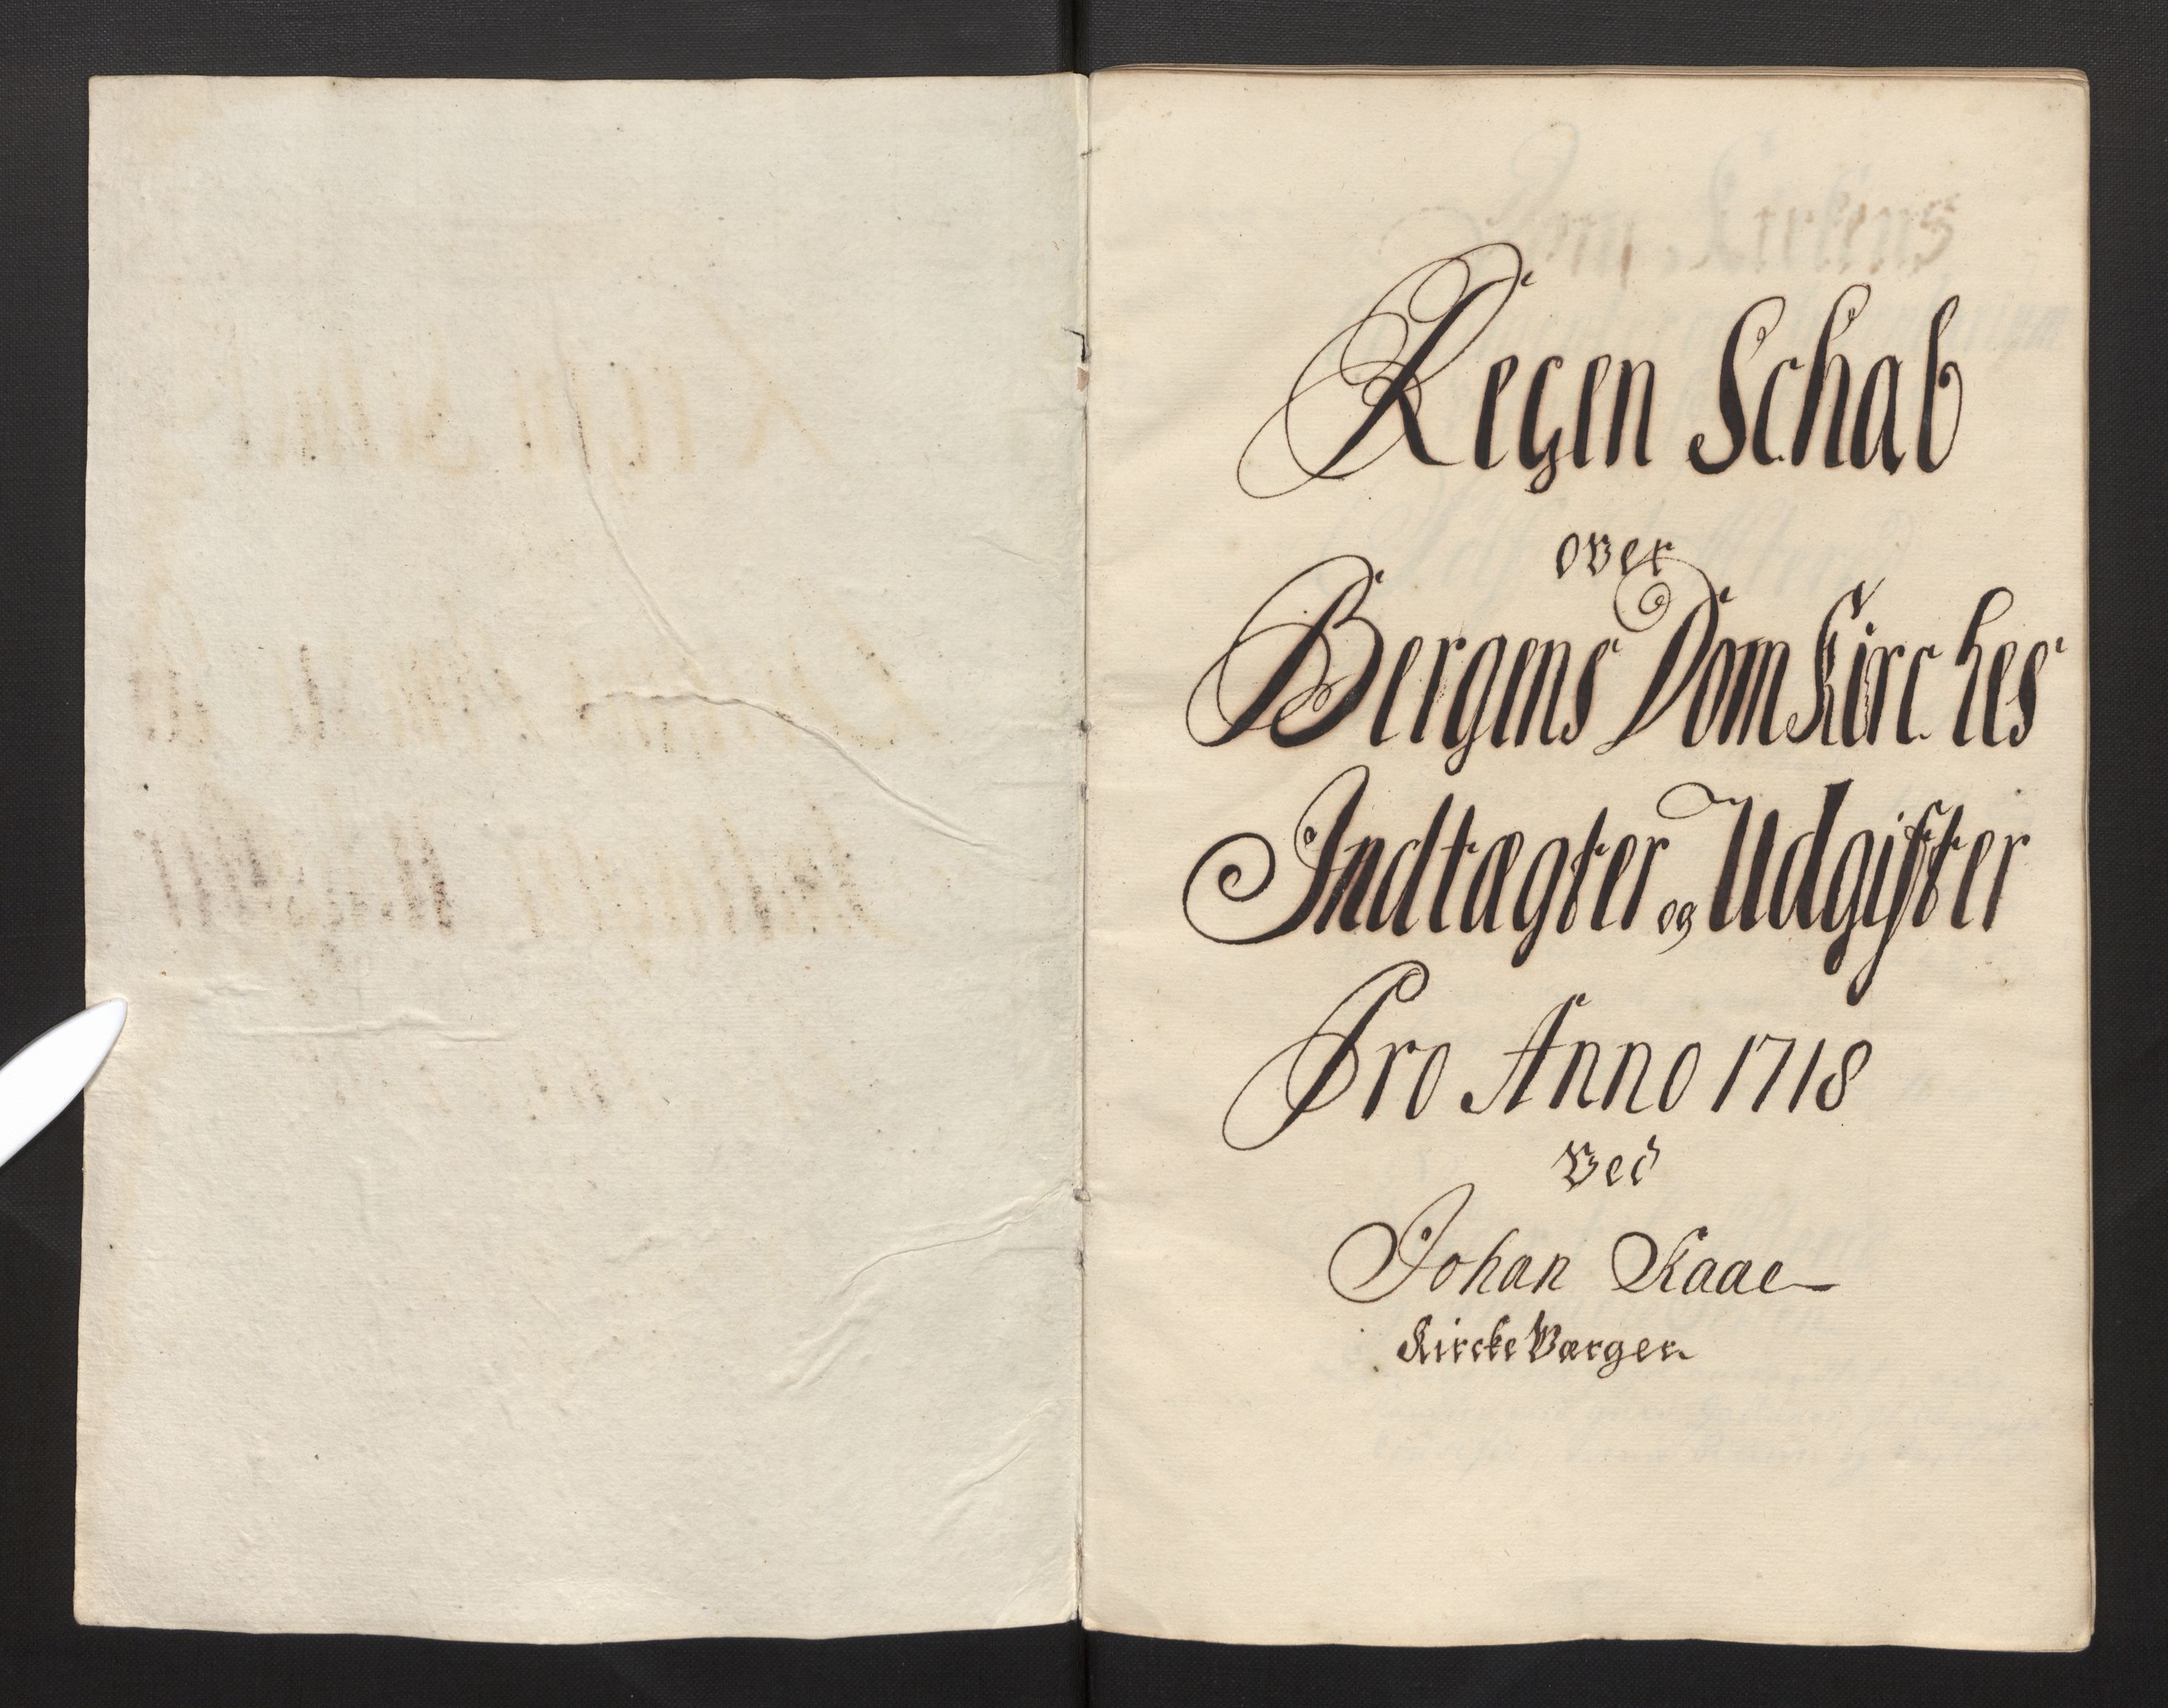 Regen Schab
over
Bergens Dom Kirches
Indtægter og Udgifter
Pro Anno 1718
Ved
Johan Kaae
Kircke Værger